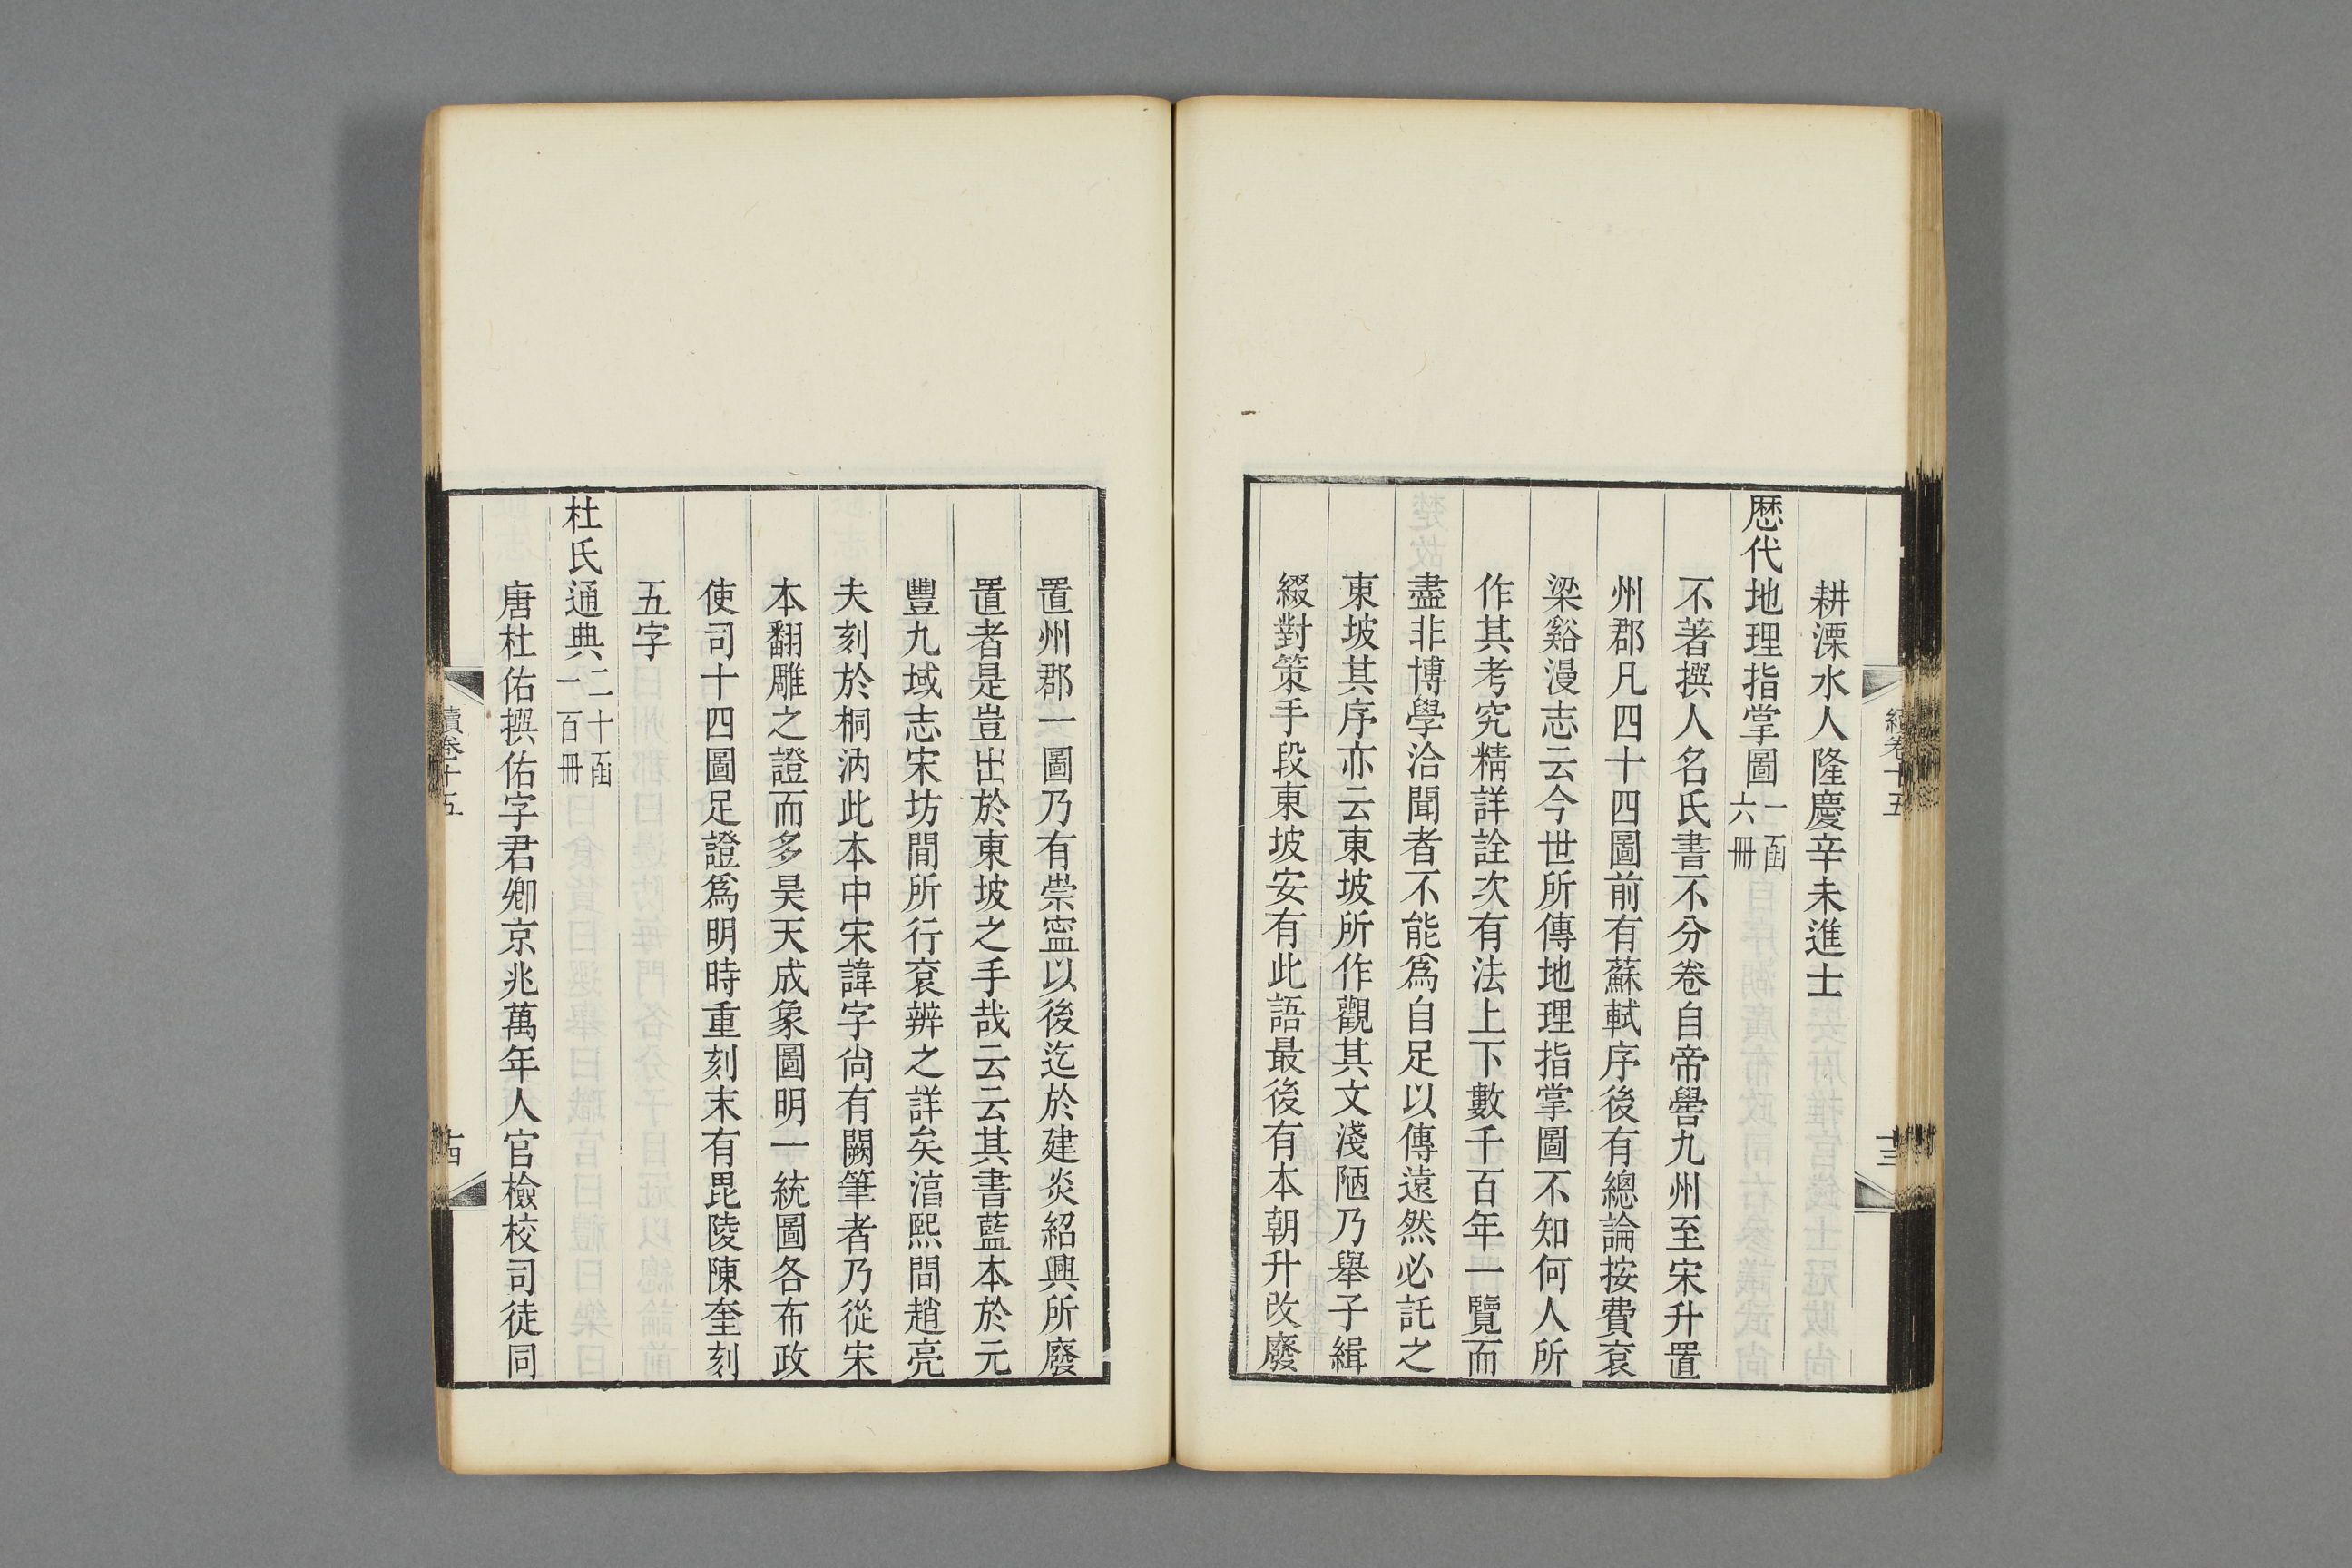 耕溧水人隆慶辛未進士
歷代地理指掌圖一函六冊
不著撰人名氏書不分卷自帝嚳九州至宋升置
州郡凡四十四圖前有蘇軾序後有總論按費袞
梁谿漫志云今世所傳地理指掌圖不知何人所
作其考究精詳詮次有法上下數千百年一覽而
盡非博學洽聞者不能爲自足以傳遠然必託之
東坡其序亦云東坡所作觀其文淺陋乃舉子緝
綴對策手段東坡安有此語最後有本朝升改廢
置州郡一圖乃有崇寍以後迄於建炎紹興所廢
置者是豈出於東坡之手哉云云其書藍本於元
豐九域志宋坊間所行袞辨之詳矣湻熙間趙亮
夫刻於桐汭此本中宋諱字尙有闕筆者乃從宋
本翻雕之證而多昊天成象圖明一統圖各布政
使司十四圖足證爲明時重刻末有毘陵陳奎刻
五字
杜氏通典二十函一百冊
唐杜佑撰佑字君卿京兆萬年人官檢校司徒同
續卷十五
十四